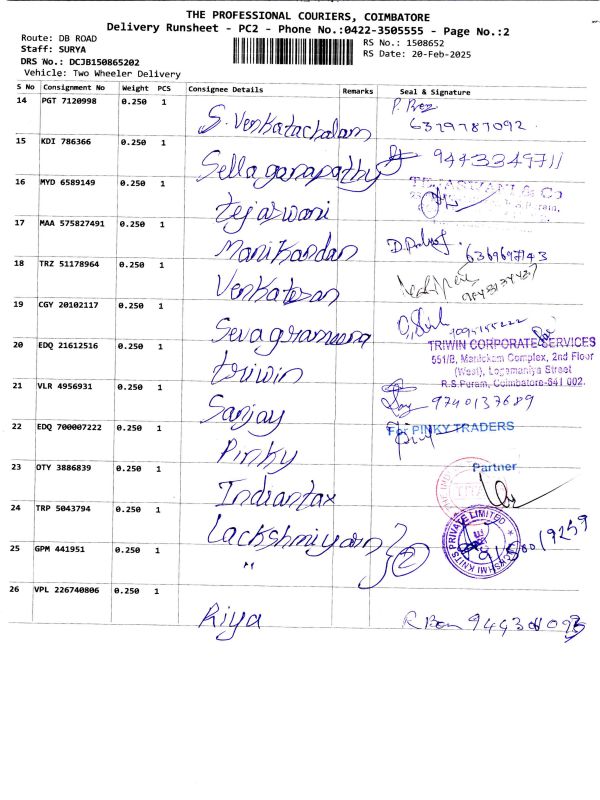 THE PROFESSIONAL COURIERS, COIMBATORE
Delivery Runsheet - PC2 - Phone No.:0422-3505555 - Page No.:2
Route: DB ROAD
RS No.: 1508652
Staff: SURYA
RS Date: 20-Feb-2025
DRS No.: DCJB150865202
Vehicle: Two Wheeler Delivery
S No Consignment No Weight PCS Consignee Details Remarks Seal & Signature
14 PGT 7120998 0.250 1 S. Venkatachalam
6379787092
15 KDI 786366 0.250 1 Sellaganapathy 9443349711
16 MYD 6589149 0.250 1 tejaswani TEJASWANI & Co
17 MAA 575827491 0.250 1 Manikandan
18 TRZ 51178964 0.250 1 Venkatesan
19 CGY 20102117 0.250 1 Sevagrameena
20 EDQ 21612516 0.250 1 triwin TRIWIN CORPORATE SERVICES
551/B, Manickam Complex, 2nd Floor
(West), Logamaniya Street
R.S.Puram, Coimbatore-641 002.
21 VLR 4956931 0.250 1 Sanjay 9740137689
22 EDQ 700007222 0.250 1 Pinky For PINKY TRADERS
Partner
23 OTY 3886839 0.250 1 Indiantax
24 TRP 5043794 0.250 1 Lackshmiyam 2
KNITS PRIVATE LIMITED
25 GPM 441951 0.250 1 "
26 VPL 226740806 0.250 1 Riya